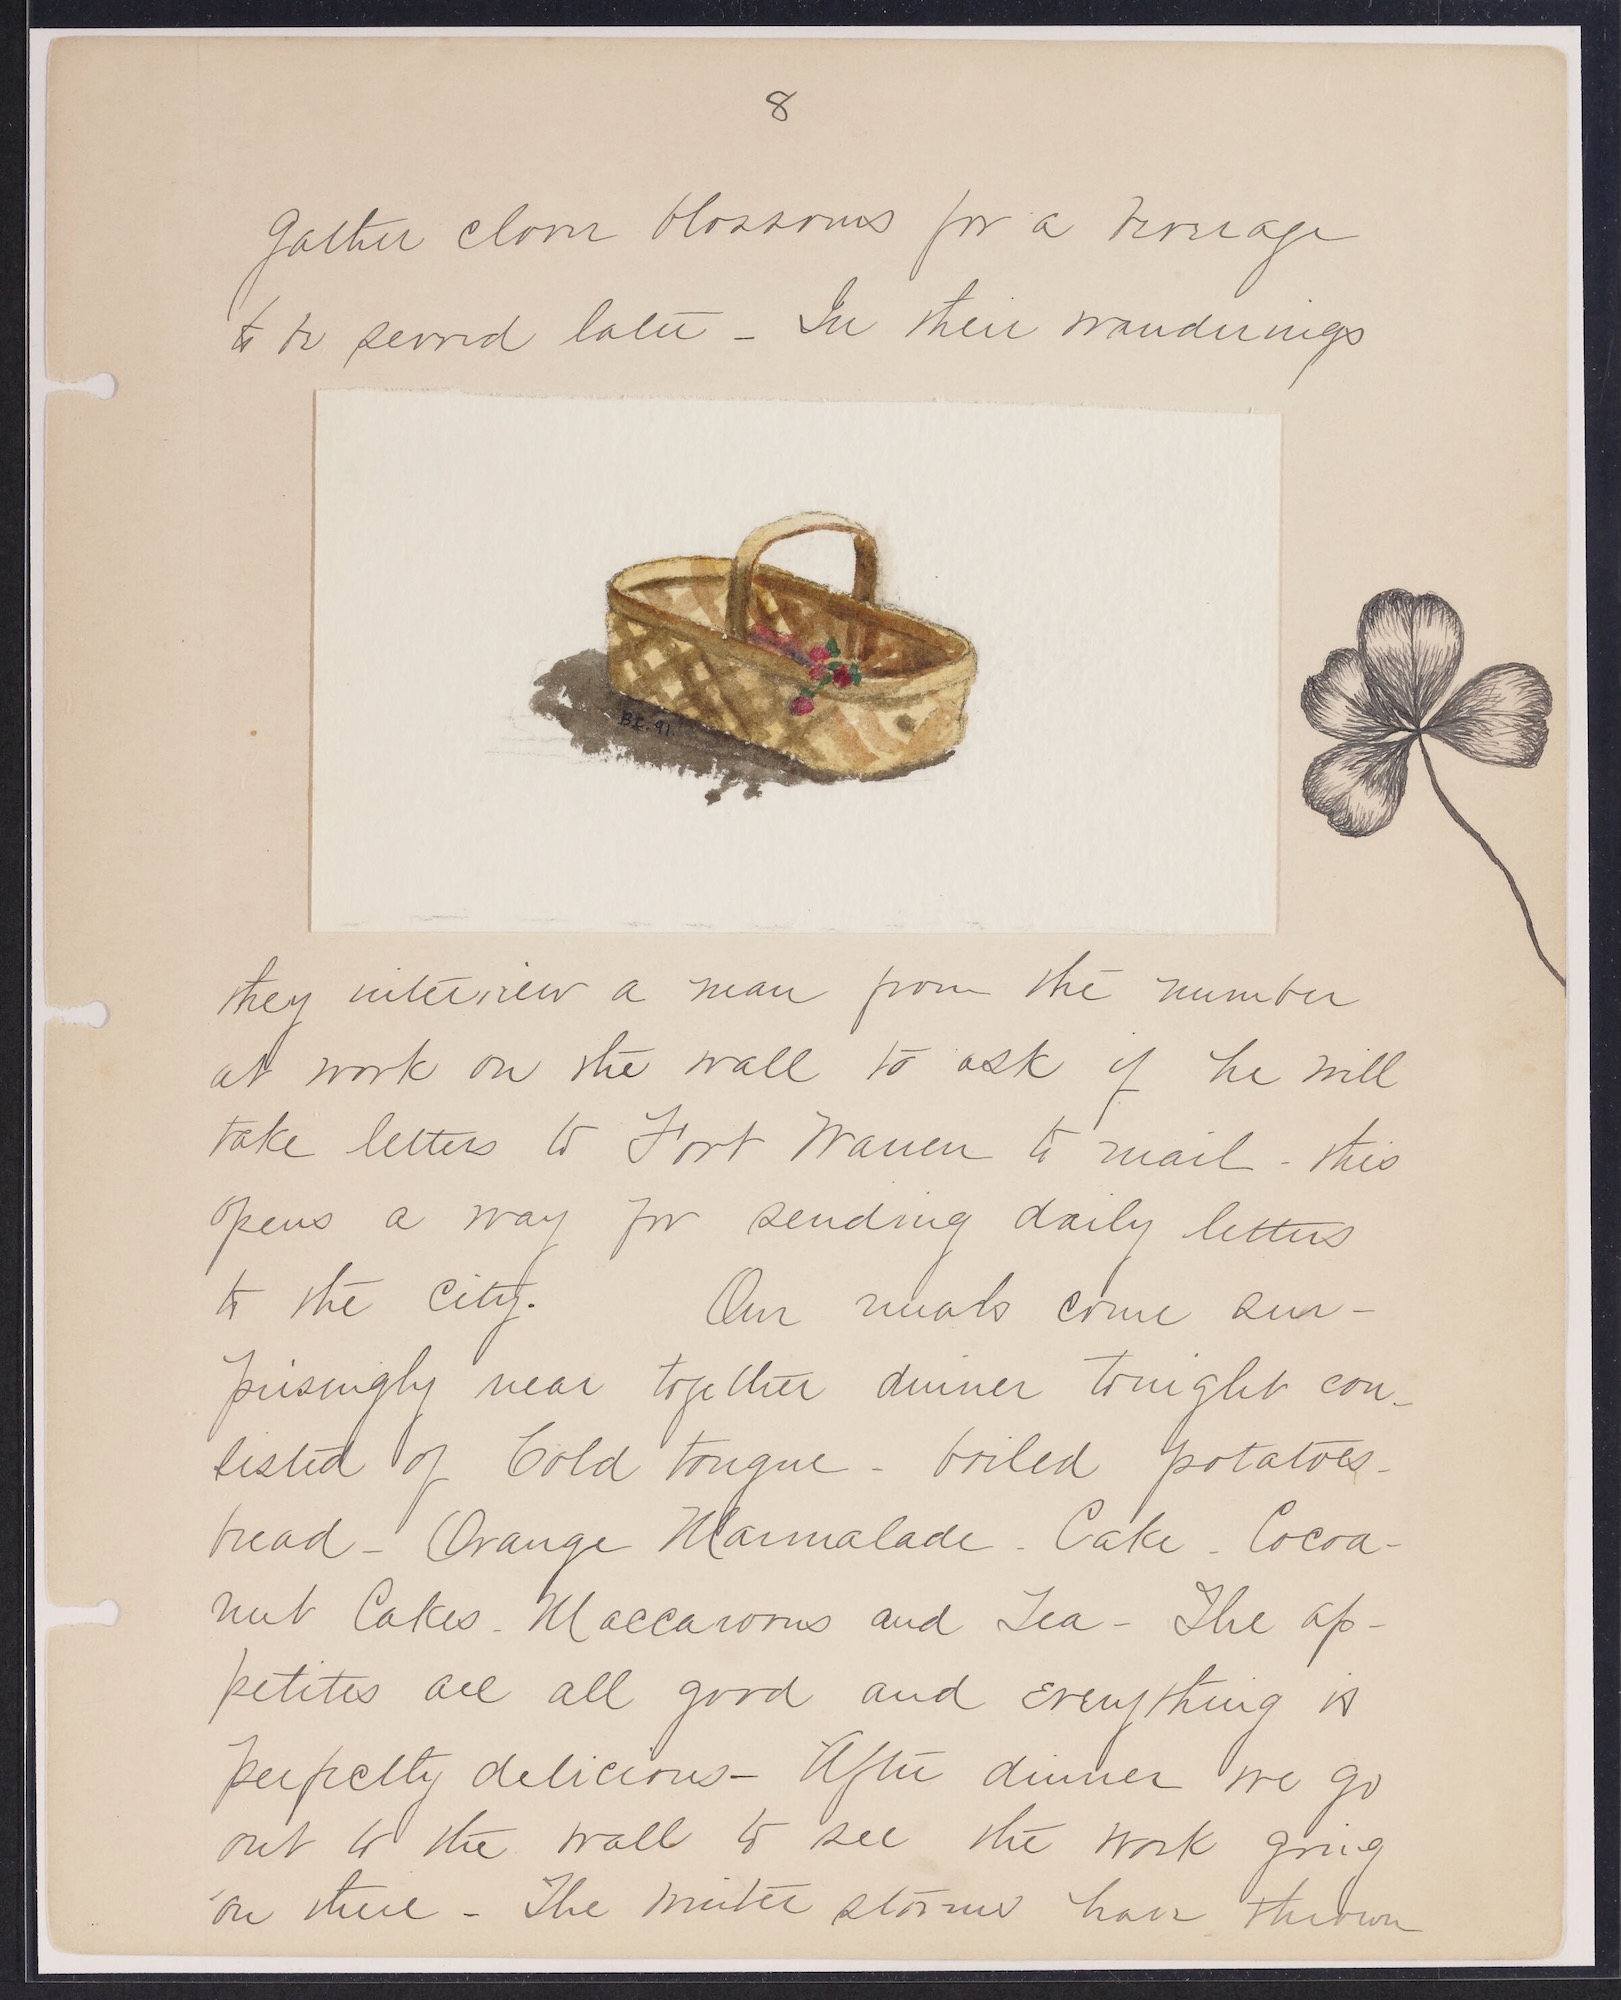 8
Gather clover blossoms for a beverage
to be served later - In their wanderings
B.C. 91.
they interview a man from the number
at work on the wall to ask if he will
take letters to Fort Warren to mail - this
opens a way for sending daily letters
to the city. Our meals come sur-
prisingly near together dinner tonight con-
sisted of Cold tongue - boiled potatoes -
bread - Orange Marmalade - Cake - Cocoa-
nut Cakes - Maccaroons and Tea - The ap-
petites are all good and everything is
perfectly delicious - After dinner we go
out to the wall to see the work going
on there - The winter storms have thrown